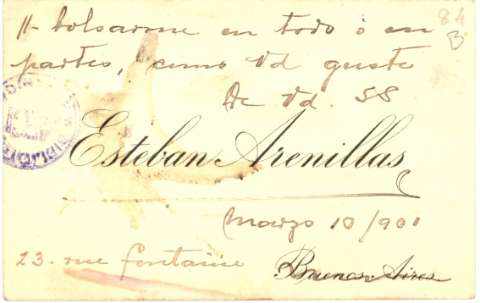 84
B
11- bolsarme en todo ó en
partes, como Vd guste
De Vd. SS
Esteban Arenillas
Marzo 10/901
23. rue fontaine
Buenos Aires